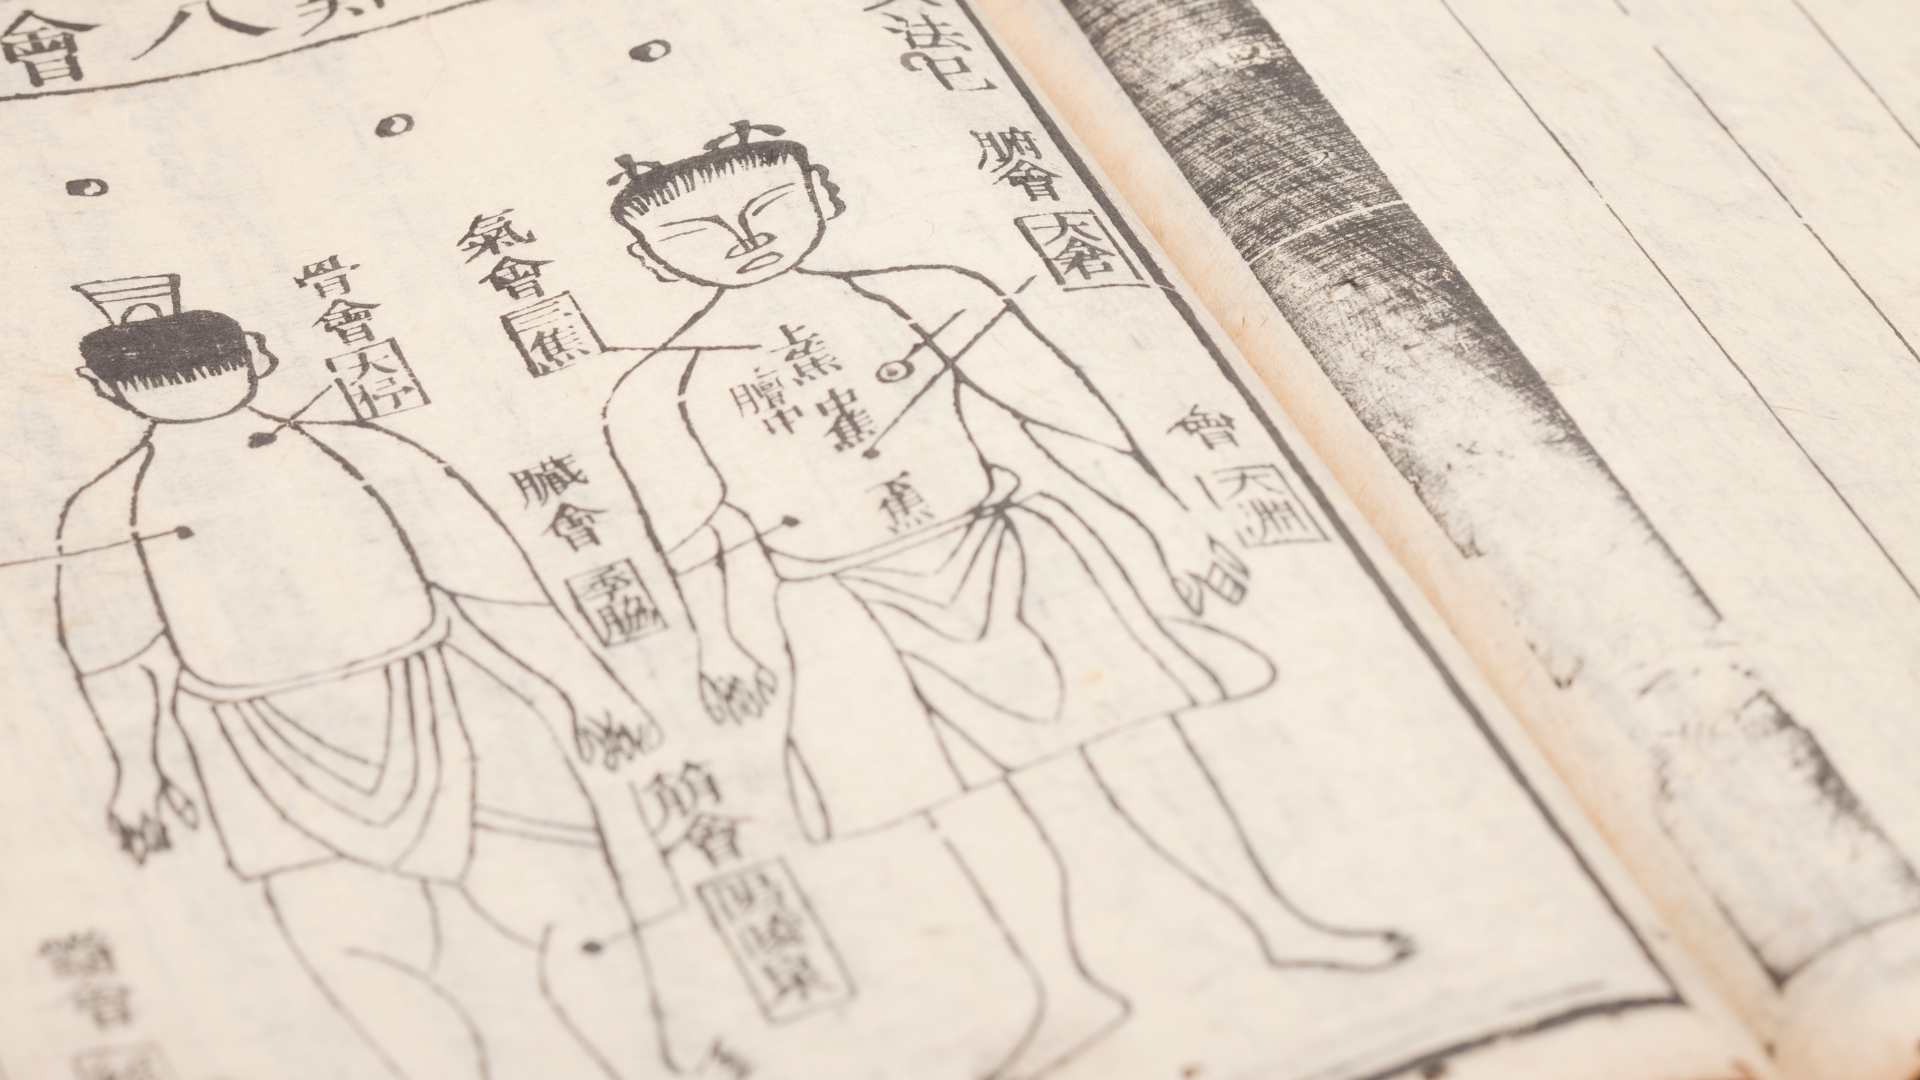 會八
法㐰
腑會
大倉
會
大淵
氣會
三焦
上焦
中焦
膻中
下焦
骨會
大杼
臟會
季脇
筋會
陽陵泉